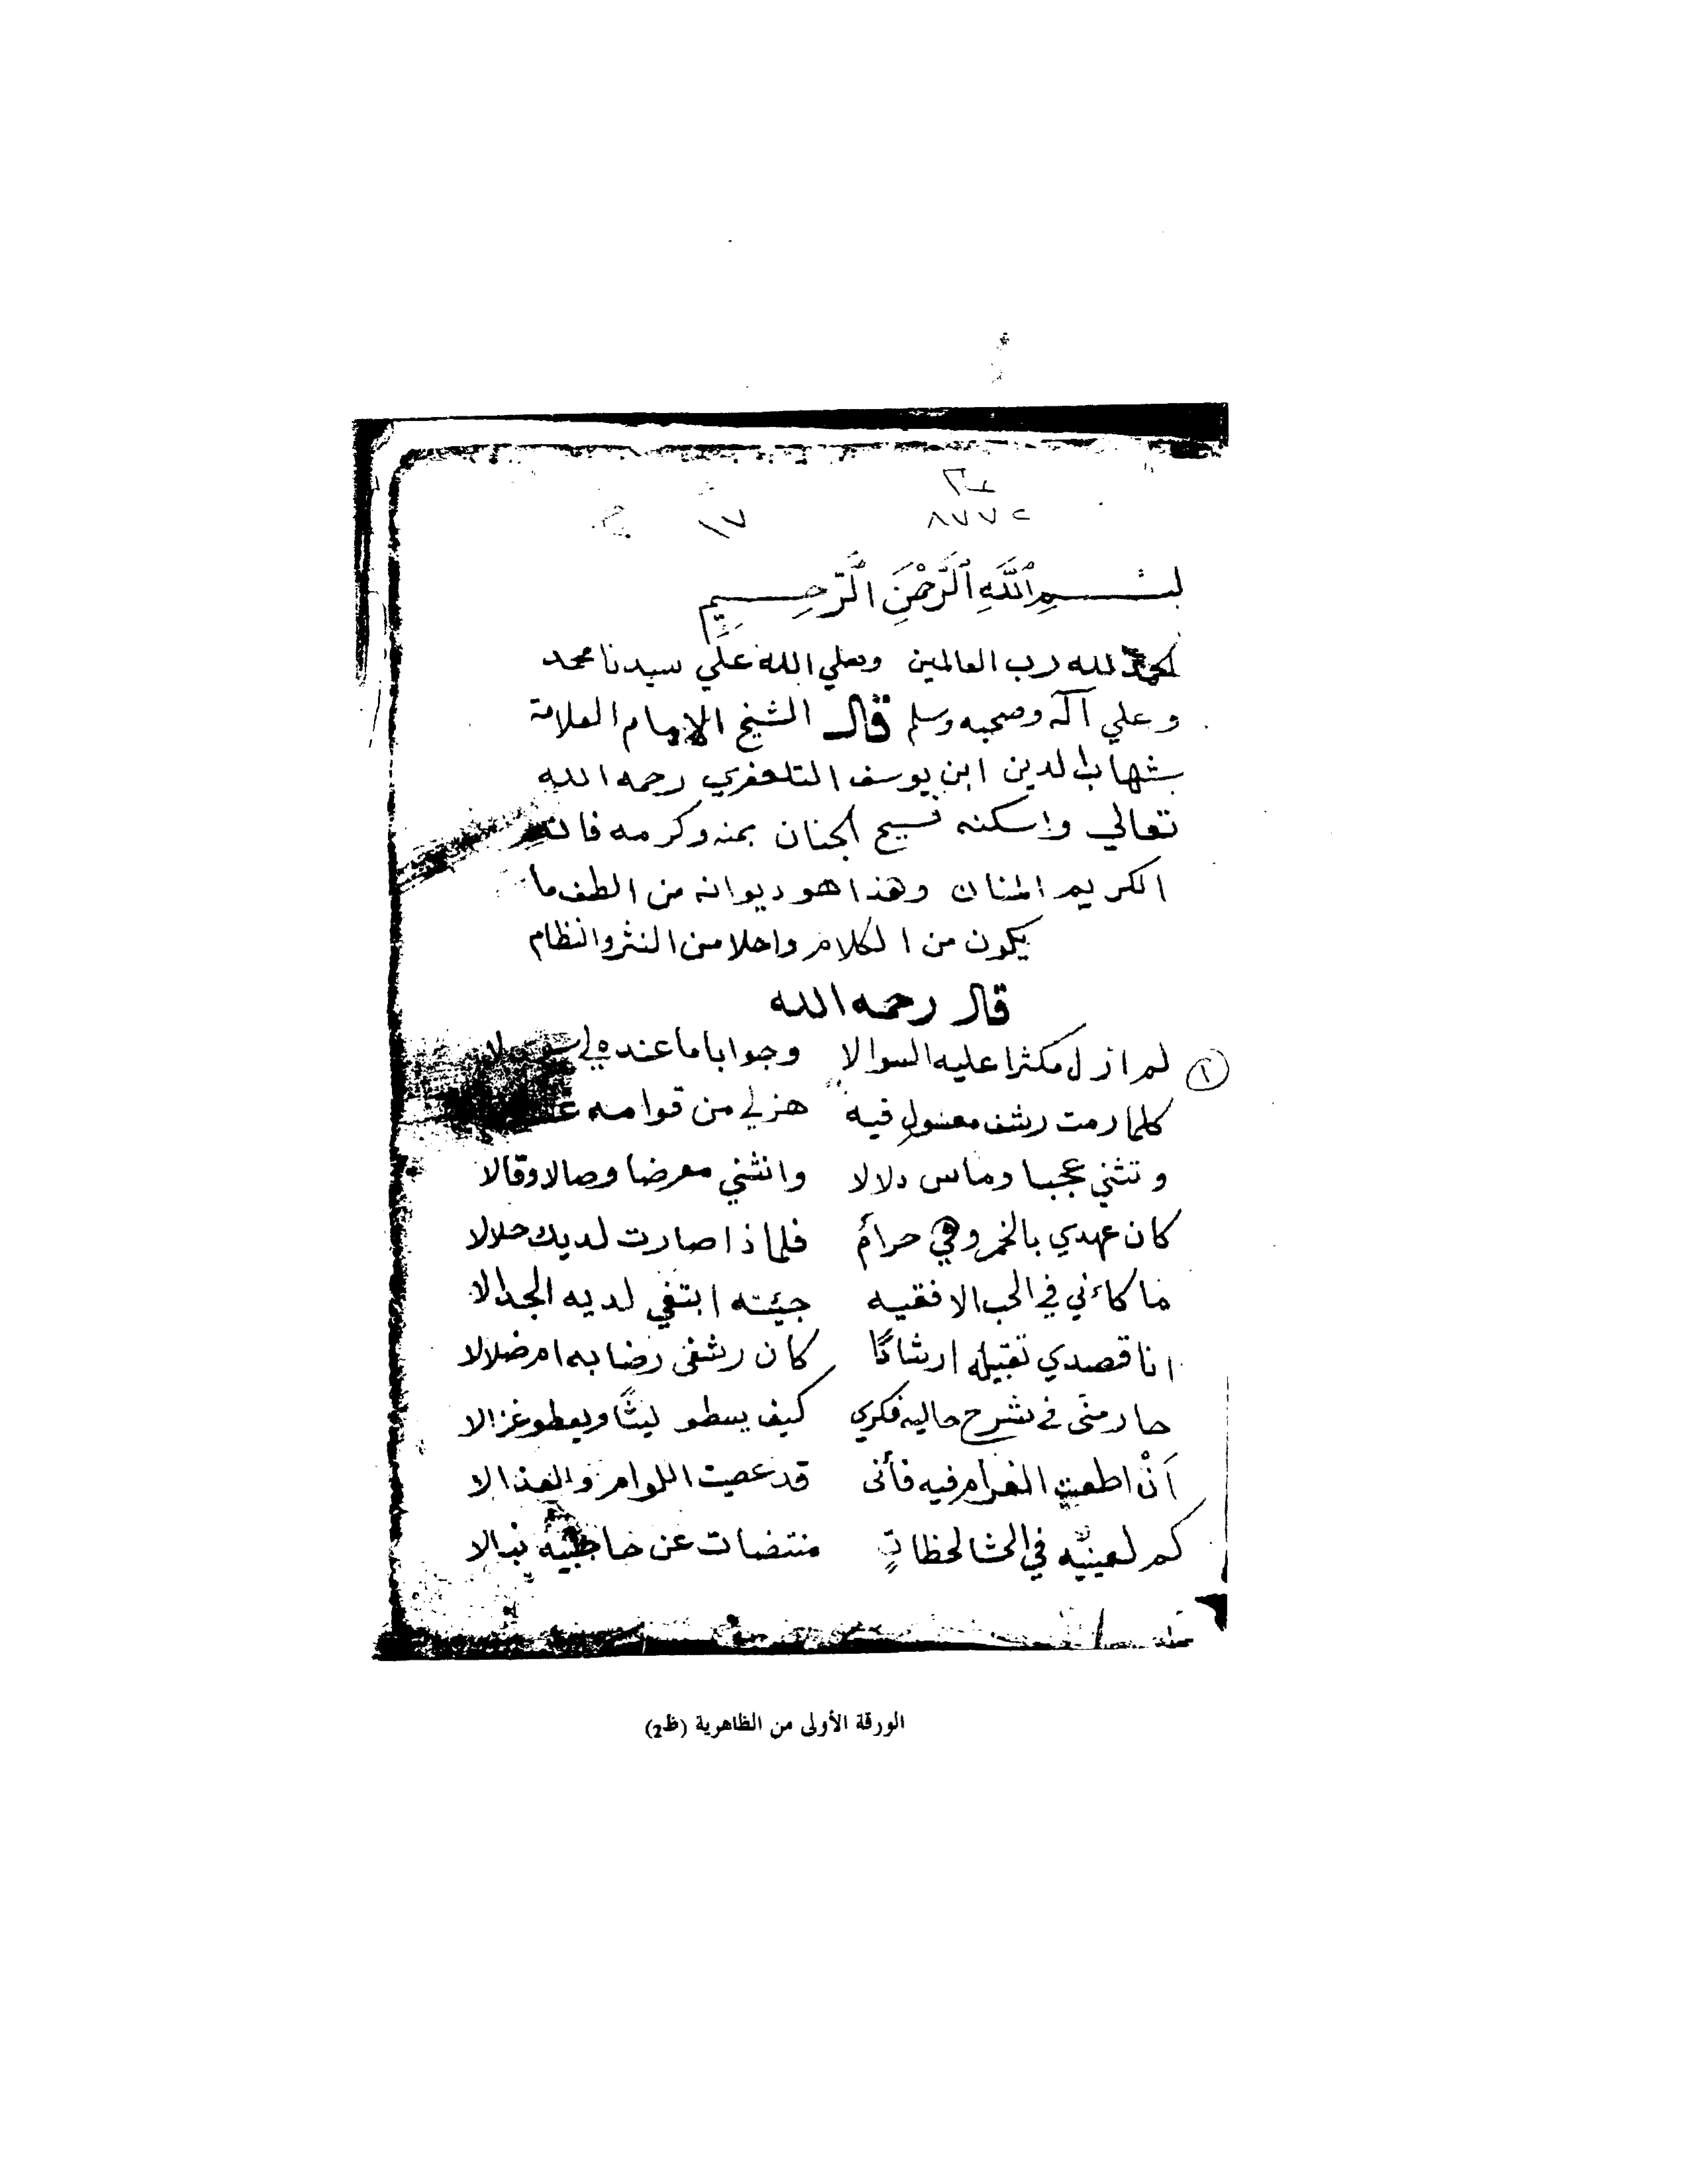 ٨٧٧٢ ١٧
بسم اللَّهِ الرَّحْمَنِ الرَّحِيمِ
الحمد لله رب العالمين وصلي الله علي سيدنا محمد
وعلي آله وصحبه وسلم قال الشيخ الإمام العلامة
شهاب الدين ابن يوسف التلعفري رحمه الله
تعالي واسكنه فسيح الجنان بمنه وكرمه فانه
الكريم المنان وهذا هو ديوانه من الطف ما
يكون من الكلام واحلا من النثر والنظام
قال رحمه الله
١ لم ازل مكثرا عليه السوالا وجوابا ما عنده لي
كلما رمت رشف معسول فيه هز لي من قوامه
وتثني عجبا وماس دلالا وانثني معرضا وصالا وقالا
كان عهدي بالخمر وهي حرامٌ فلماذا صارت لديك حلالا
ما كاءني في الحب الا فقيه جيئته ابتغي لديه الجدالا
انا قصدي تقبيله ارشادًا كان رشفى رضابه ام ضلالا
حار منى في شرح حاليه فكري كيف يسطو ليثًا ويعطو غزالا
أنْ اطعت الغرام فيه فأنى قد عصيت اللوام والعذالا
كم لعينيه في الحشا لحظاتٍ منتضات عن حاجبيه نبالا
الورقة الأولى من الظاهرية (ظ2)